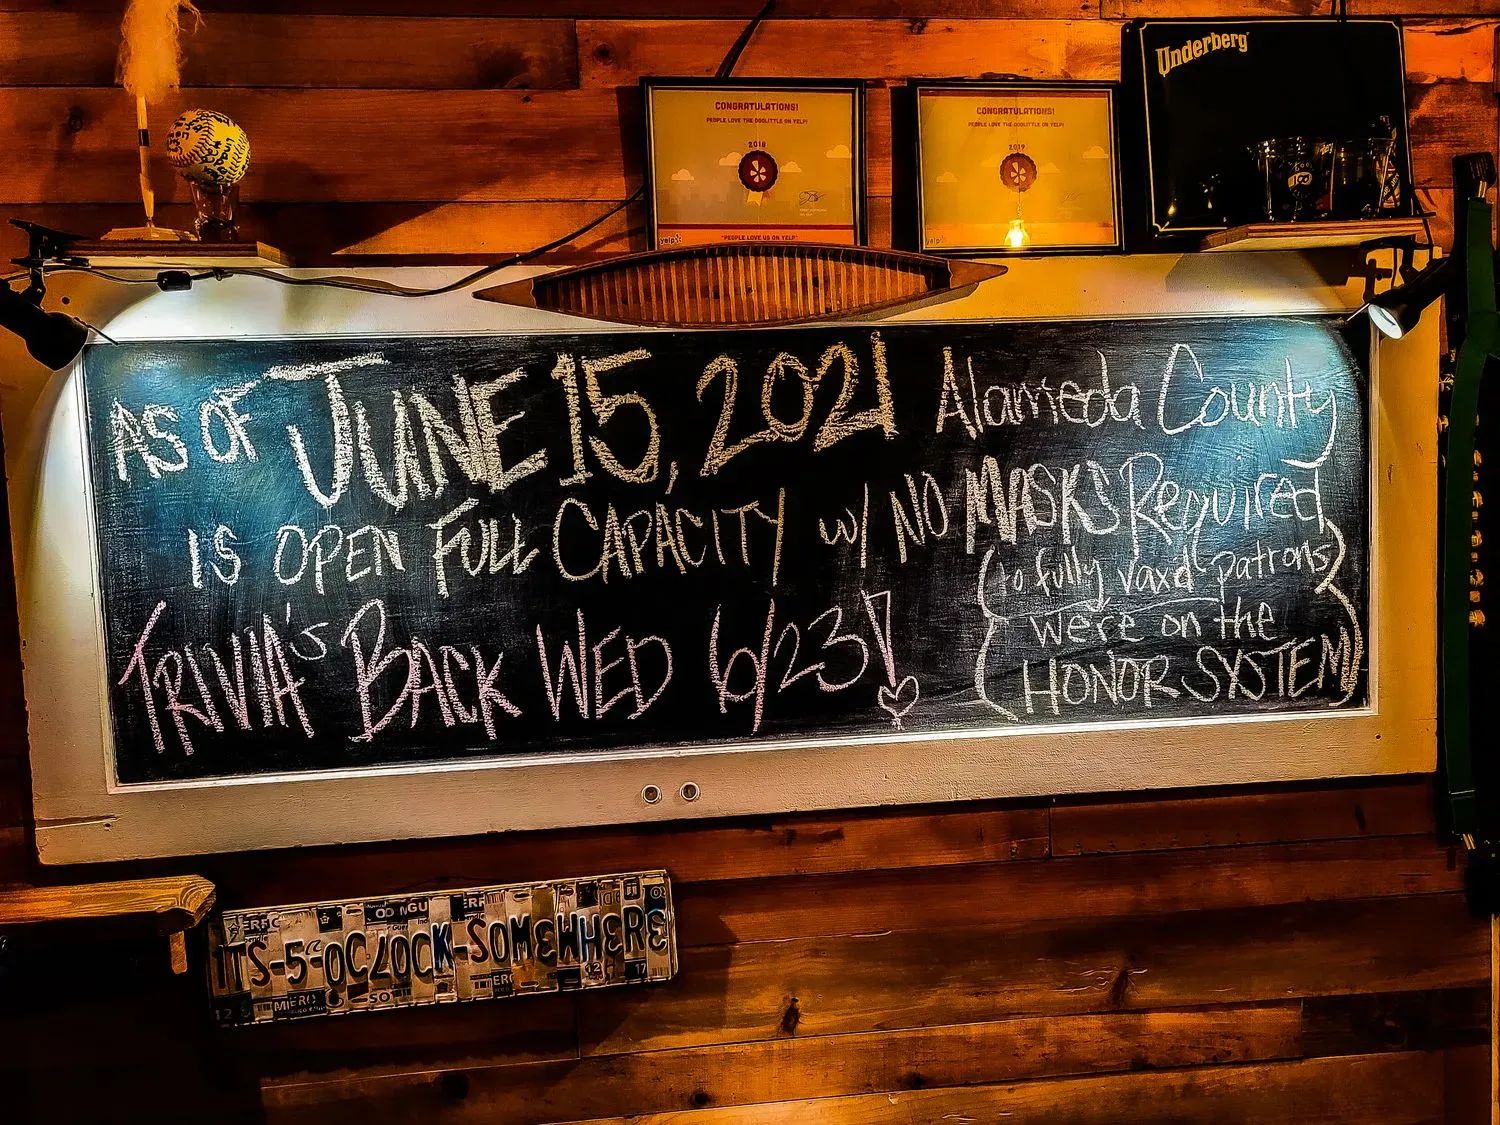 Underberg
CONGRATULATIONS!
PEOPLE LOVE THE DOOLITTLE ON YELP!
2018
yelp
"PEOPLE LOVE US ON YELP"
CONGRATULATIONS!
PEOPLE LOVE THE DOOLITTLE ON YELP!
2019
yelp
100
AS OF JUNE 15, 2021 Alameda County
IS OPEN FULL CAPACITY w/ NO MASKS Required
(to fully vaxd patrons)
TRIVIA'S BACK WED 6/23!
(We're on the
HONOR SYSTEM)
ITS-5-OCLOCK-SOMEWHERE